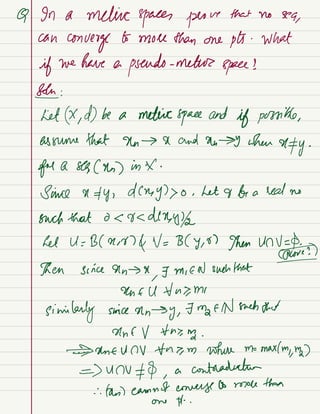 Q) In a metric spaces prove that no seq,
can converge to more than one pts. What
if we have a pseudo-metric space!
Soln:
Let (X,d) be a metric space and if possible,
assume that xn → x and xn → y when x≠y.
for a seq (xn) in X.
Since x≠y, d(x,y)>0. Let r be a real no
such that 0<r<d(x,y)/2
Let U=B(x,r) & V=B(y,r) Then U∩V=ϕ.
(Prove?)
Then since xn→x, ∃ m1∈N such that
xn∈U ∀n≥m1
similarly since xn→y, ∃ m2∈N such that
xn∈V ∀n≥m2.
⇒ xn∈U∩V ∀n≥m where m=max(m1,m2)
⇒ U∩V≠ϕ, a contradiction
∴ (xn) cannot converge to more than
one pt..